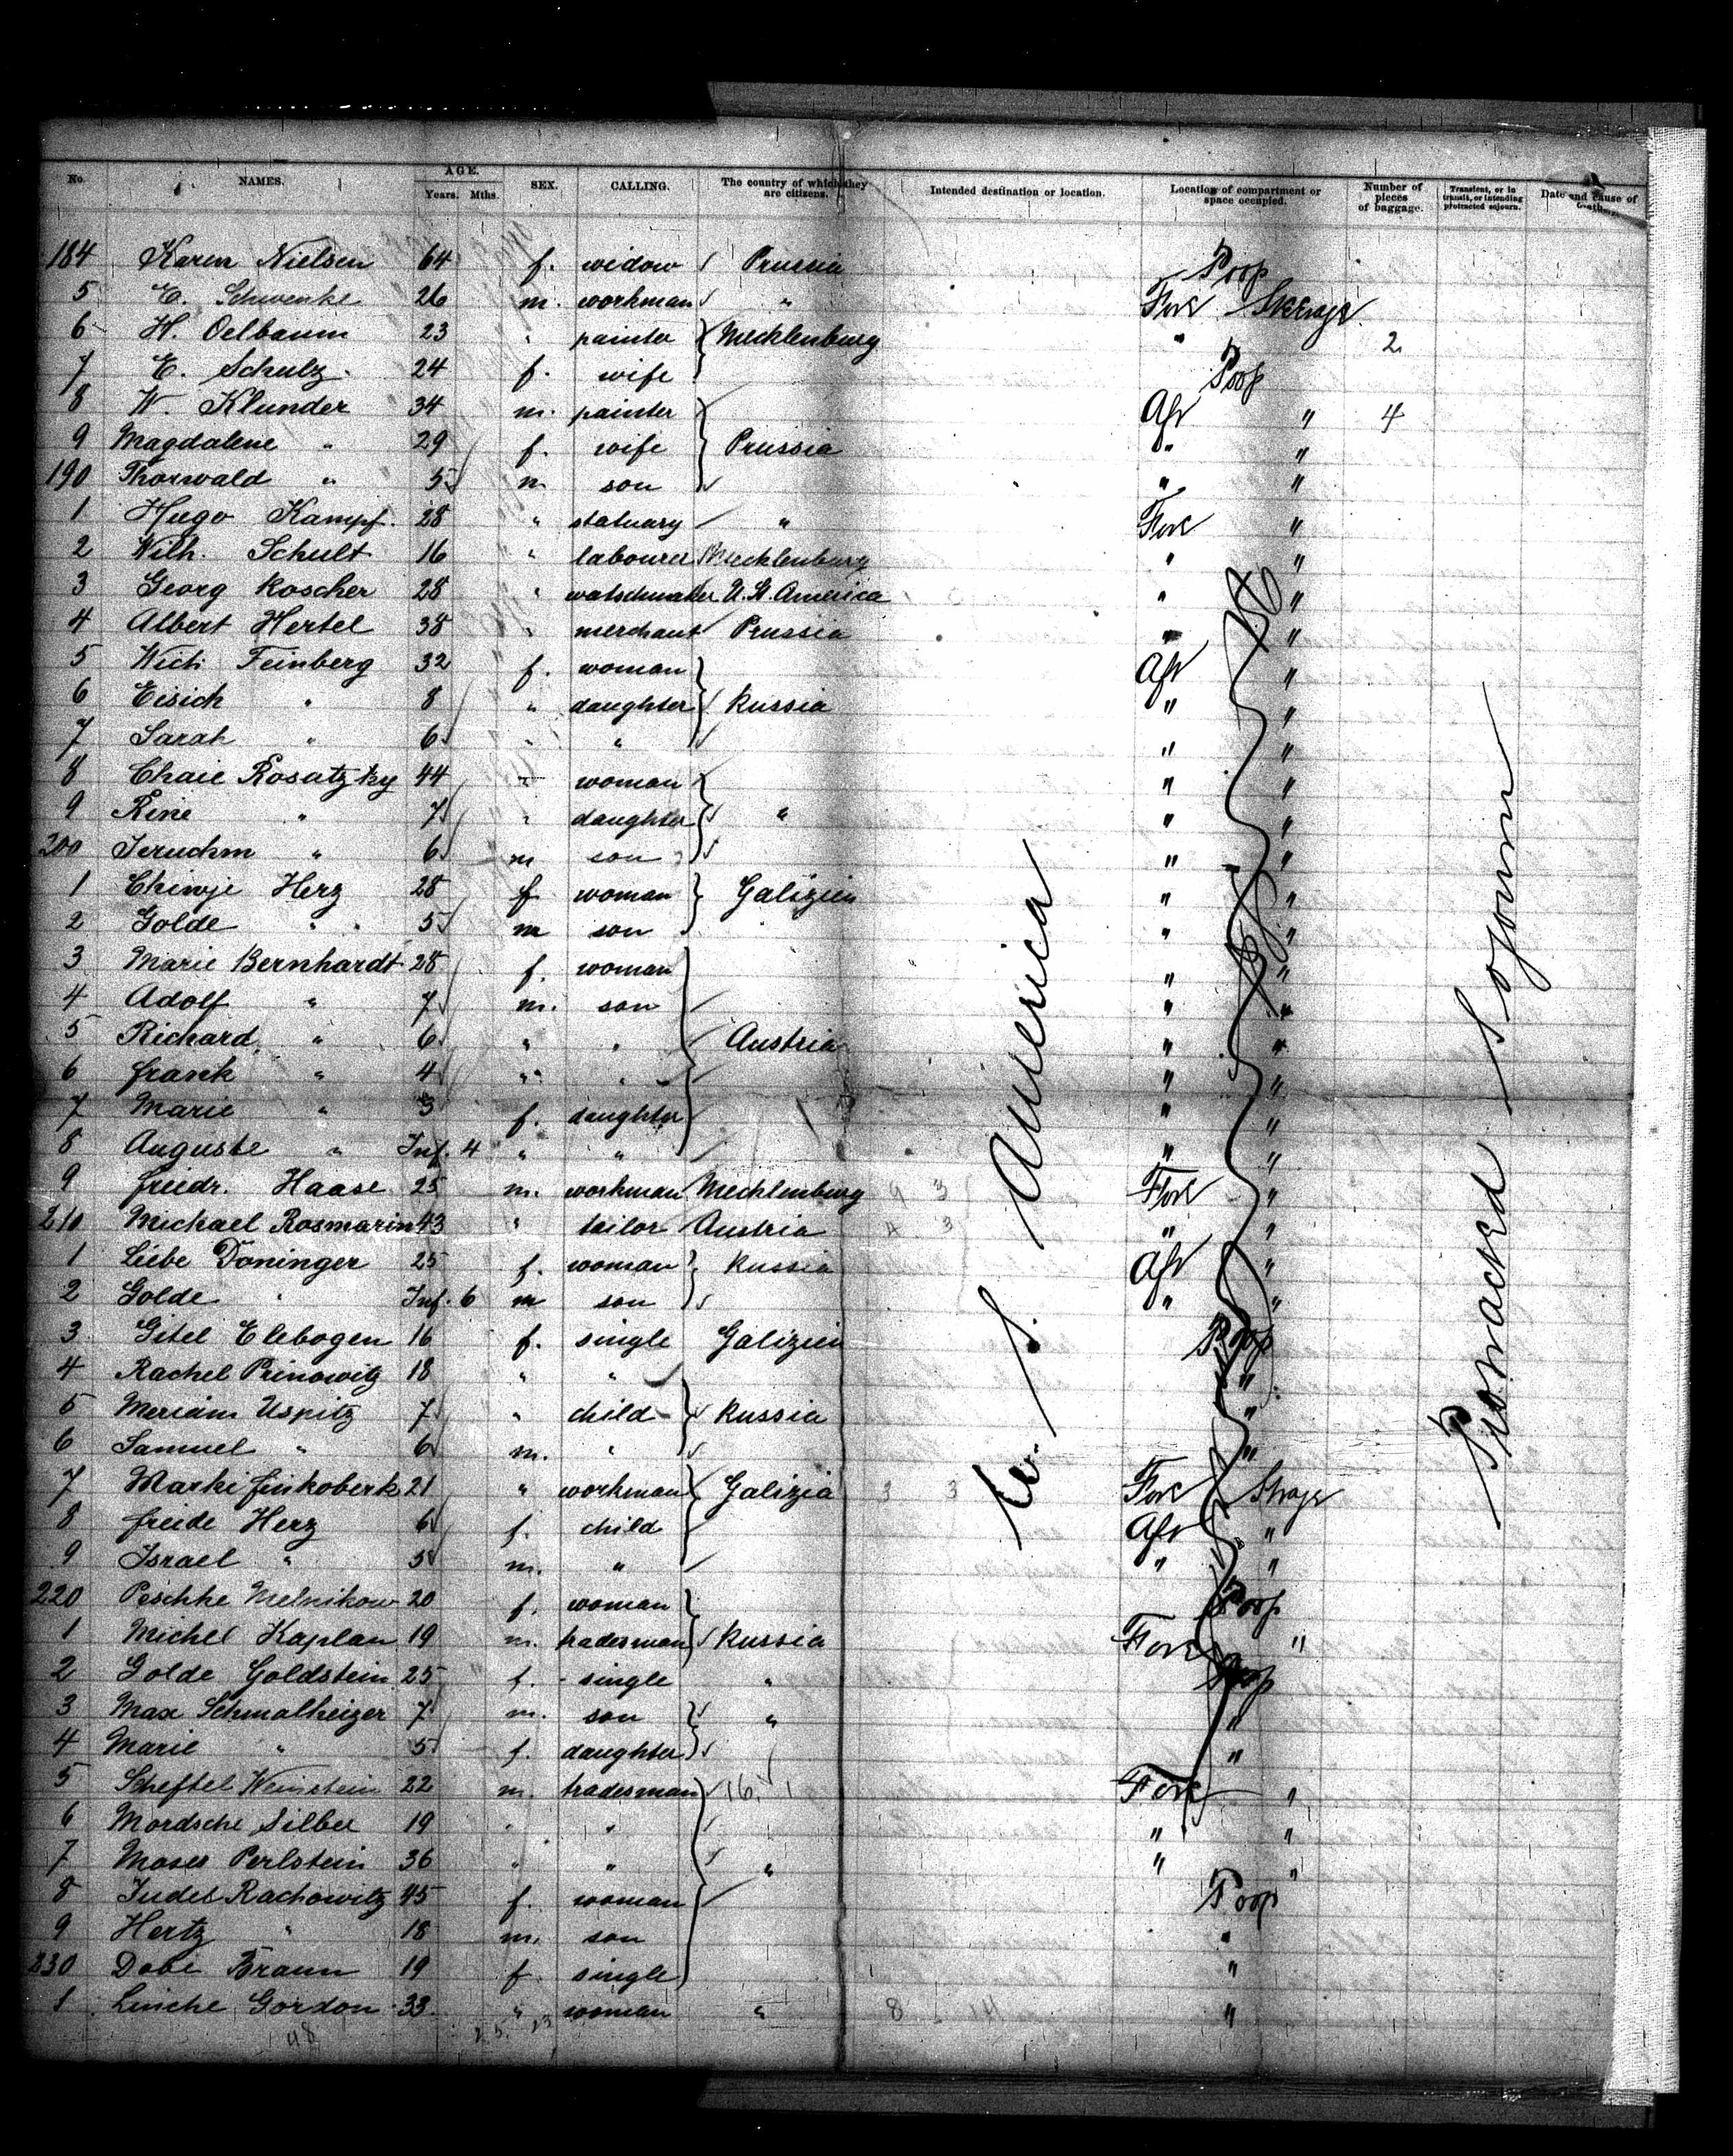 No. NAMES. AGE. Years. Mths. SEX. CALLING. The country of which they are citizens. Intended destination or location. Location of compartment or space occupied. Number of pieces of baggage. Transient, or in transit, or intending protracted sojourn. Date and cause of death.
184 Karen Nielsen 64 f. widow Prussia Poop
5 E. Schwenke 26 m. workman " Fore Steerage
6 H. Oelbaum 23 " painter Mecklenburg " 2
7 E. Schulz 24 f. wife Poop
8 W. Klunder 34 m. painter Aft " 4
9 Magdalene " 29 f. wife Prussia " "
190 Thorwald " 5 m son " "
1 Hugo Kampf. 28 " statuary " Fore "
2 Wilh. Schult 16 " labourer Mecklenburg " "
3 Georg Roscher 28 " watschmaker U. St. America " "
4 Albert Hertel 38 " merchant Prussia " "
5 Wich Feinberg 32 f. woman Aft "
6 Eisich " 8 " daughter Russia " "
7 Sarah " 6 " " " "
8 Chaie Rosatzky 44 " woman " "
9 Rine " 7 " daughter " " "
200 Jeruchm " 6 m son " "
1 Chiwje Herz 28 f woman Galizien " "
2 Golde " 5 m son " "
3 Marie Bernhardt 28 f. woman " "
4 Adolf " 7 m. son " "
5 Richard " 6 " " Austria " "
6 Frank " 4 " " " "
7 Marie " 3 f. daughter " "
8 Auguste " Inf. 4 " " " "
9 Friedr. Haase 25 m. workman Mecklenburg Fore "
210 Michael Rosmarin 43 " tailor Austria " "
1 Liebe Toninger 25 f. woman Russia Aft "
2 Golde " Inf. 6 m son " "
3 Gitel Elebogen 16 f. single Galizien Poop
4 Rachel Prinowitz 18 " " "
5 Meriam Uspitz 7 " child Russia "
6 Samuel " 6 m. " "
7 Marki Finkoberk 21 " workman Galizia Fore Strage
8 Freide Herz 6 f. child Aft "
9 Israel " 5 m. " " "
220 Peschke Melnikow 20 f. woman Poop
1 Michel Kaplan 19 m. tradesman Russia Fore "
2 Golde Goldstein 25 f. single " Poop
3 Max Schmalheizer 7 m. son " "
4 Marie " 5 f. daughter "
5 Scheftel Weinstein 22 m. tradesman 16 Fore "
6 Mordsche Silber 19 " " " "
7 Moses Perlstein 36 " " " " "
8 Judes Rachowitz 45 f. woman Poop
9 Hertz " 18 m. son "
230 Dobe Braun 19 f. single "
1 Linche Gordon 33 " woman " 8 "
48
U. S. America
Protracted Sojourn